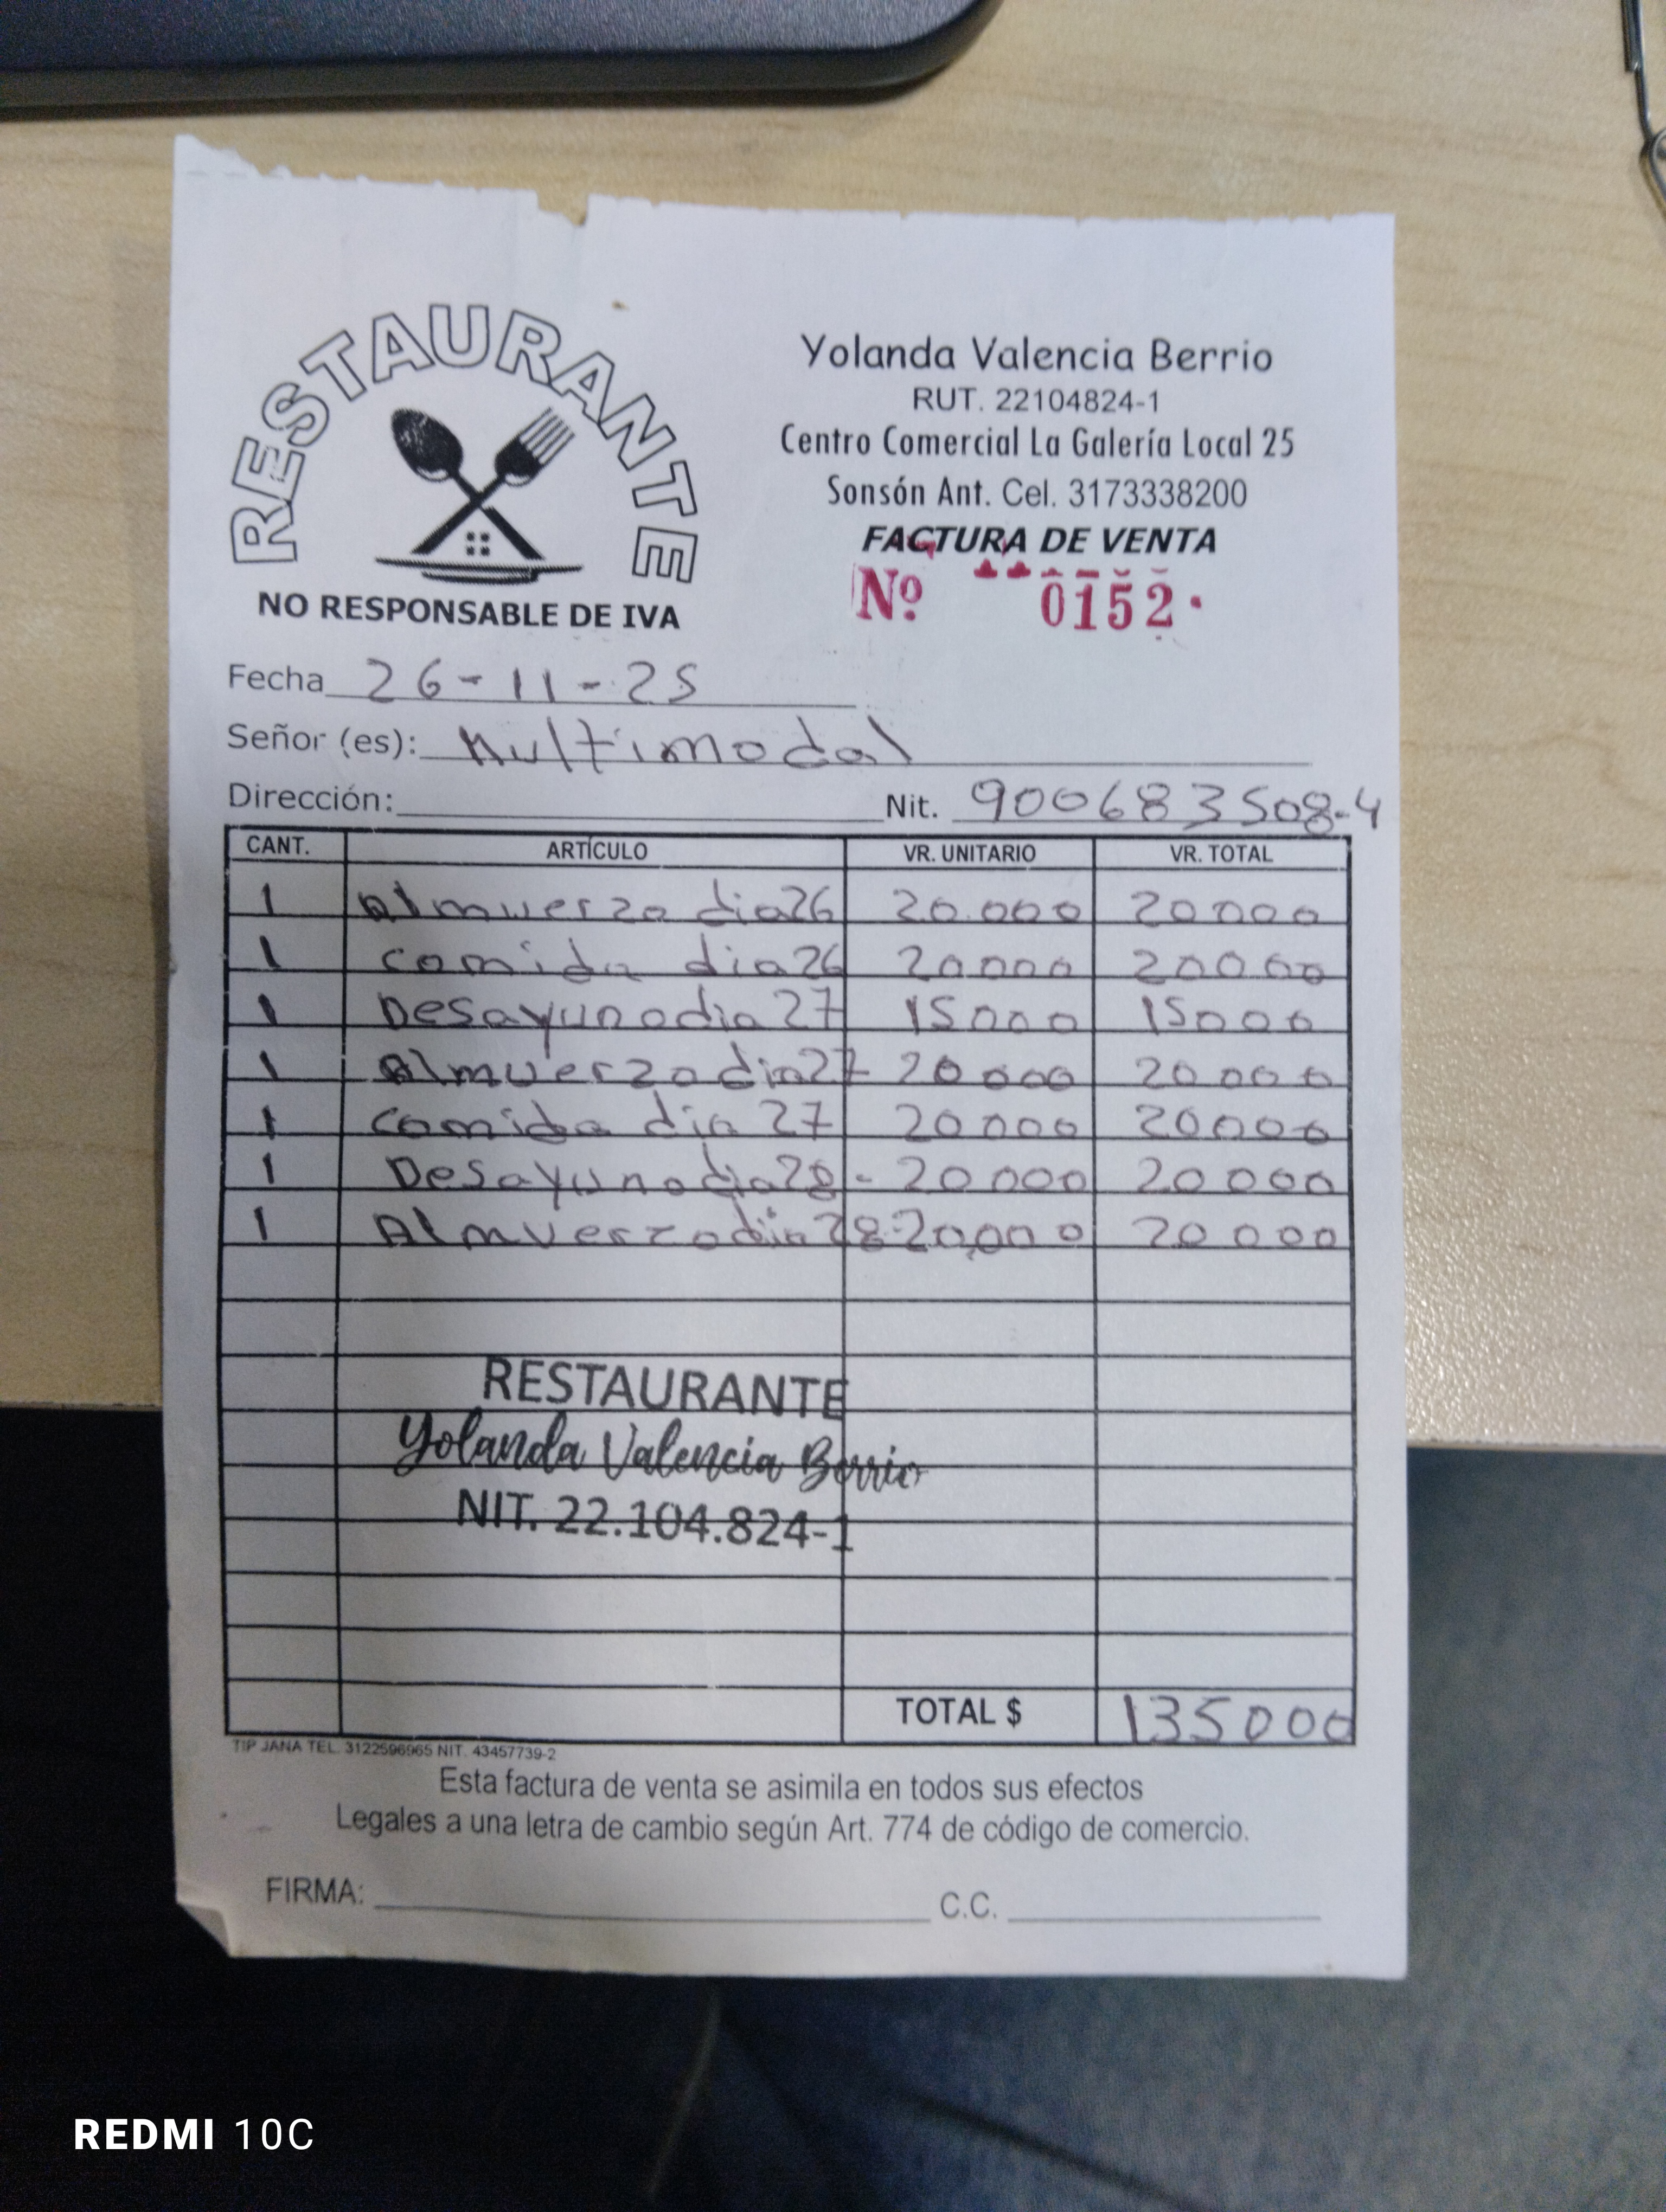 RESTAURANTE
NO RESPONSABLE DE IVA
Yolanda Valencia Berrio
RUT. 22104824-1
Centro Comercial La Galería Local 25
Sonsón Ant. Cel. 3173338200
FACTURA DE VENTA
Nº 0152
Fecha 26-11-25
Señor (es): Multimodal
Dirección: Nit. 900683508-4
CANT. ARTÍCULO VR. UNITARIO VR. TOTAL
1 Almuerzo dia 26 20.000 20000
1 comida dia 26 20000 20000
1 Desayuno dia 27 15000 15000
1 Almuerzo dia 27 20000 20000
1 comida dia 27 20000 20000
1 Desayuno dia 28 - 20000 20000
1 Almuerzo dia 28 - 20,000 20000
RESTAURANTE
Yolanda Valencia Berrio
NIT. 22.104.824-1
TOTAL $ 135000
TIP JANA TEL. 3122596965 NIT. 43457739-2
Esta factura de venta se asimila en todos sus efectos
Legales a una letra de cambio según Art. 774 de código de comercio.
FIRMA: C.C.
REDMI 10C